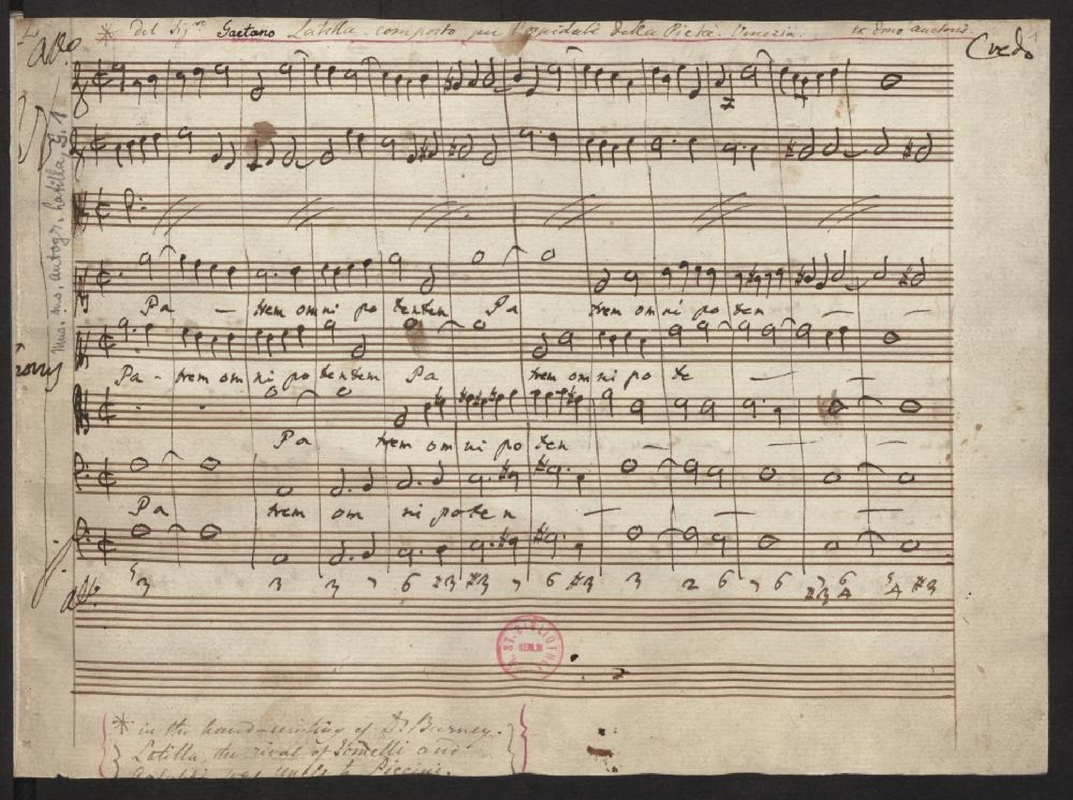 * del Sig.re Gaetano Latilla composto per l'ospidale della Pietà. Venezia. ex dono auctoris.
Credo
All.o
Mus. ms. autogr. Latilla, G. 1
Pa — trem omni po tentem Pa trem omni po ten — —
Pa - trem om ni po tentem Pa trem om ni po te — —
Pa trem om ni po ten — — —
Pa trem om ni po te n — — —
5 3 3 3 7 6 #3 #3 7 6 #3 3 2 6 7 6 7 #3 6 4 5 4 #3
all.o
ST. BIBLIOTHE
BERLIN
* in the hand-writing of Dr Burney.
Latilla, the rival of Jomelli and
Galuppi, was uncle to Piccini.